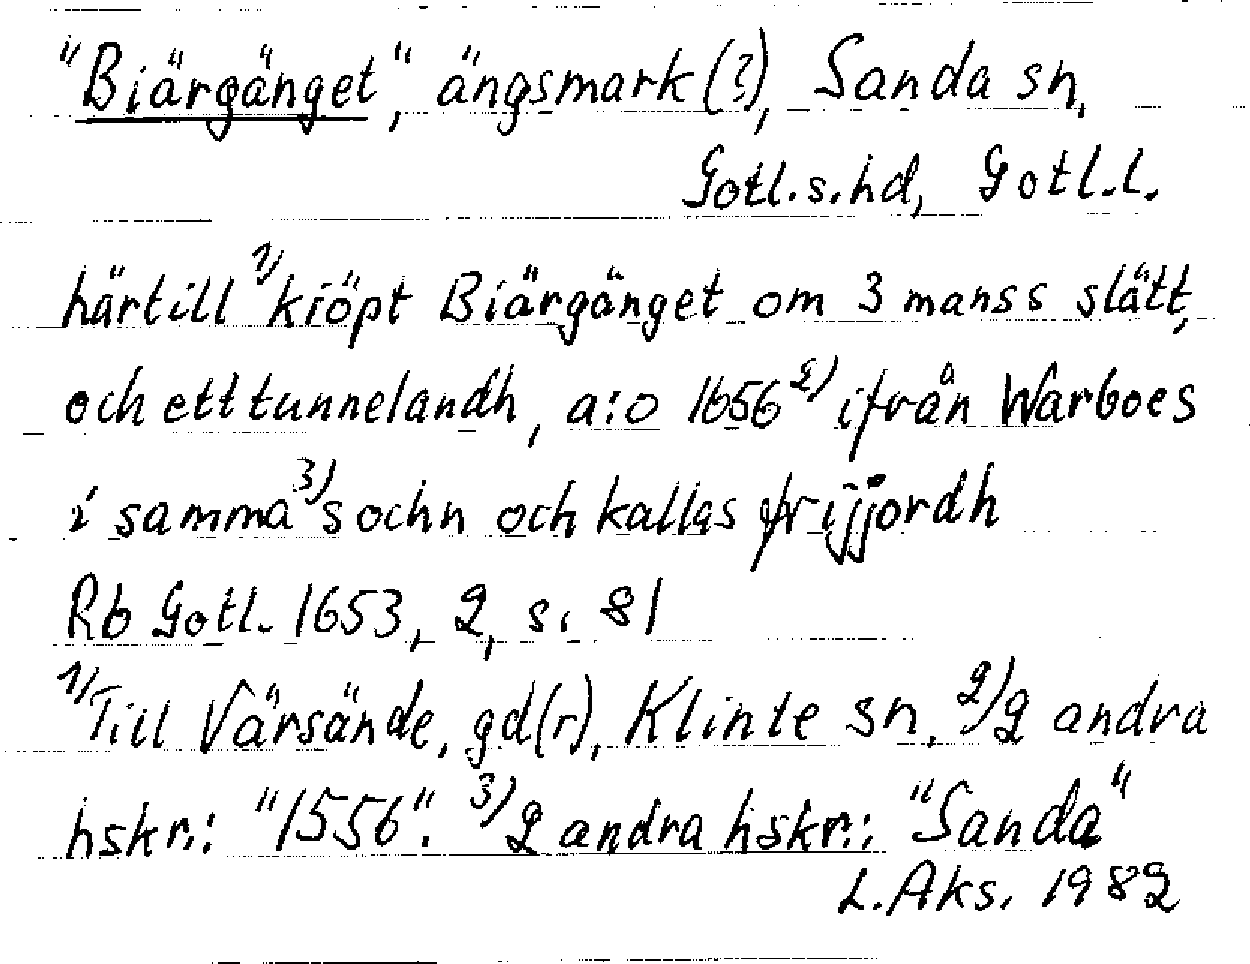 "Biärgänget", ängsmark (?), Sanda sn,
Gotl.s.hd, Gotl.l.
härtill 1) kiöpt Biärgänget om 3 manss slätt,
och ett tunnelandh, a:o 1656 2) ifrån Warboes
i samma 3) sochn och kallas frijjordh
Rb Gotl. 1653, 2, s. 81
1) Till Värsände, gd(r), Klinte sn. 2) 2 andra
hskr.: "1556". 3) 2 andra hskr.: "Sanda"
L.Aks. 1982